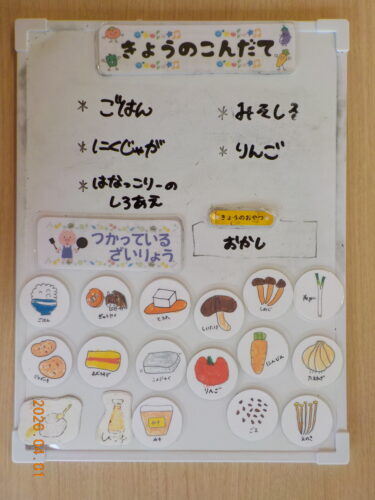 きょうのこんだて
* ごはん
* みそしる
* にくじゃが
* りんご
* はなっこりーの
しろあえ
きょうのおやつ
おかし
つかっている
ざいりょう
ごはん
ぎゅうにく
とうふ
しいたけ
しめじ
ねぎ
じゃがいも
あぶらあげ
こんにゃく
りんご
にんじん
たまねぎ
みそ
ごま
えのき
2026.04.01